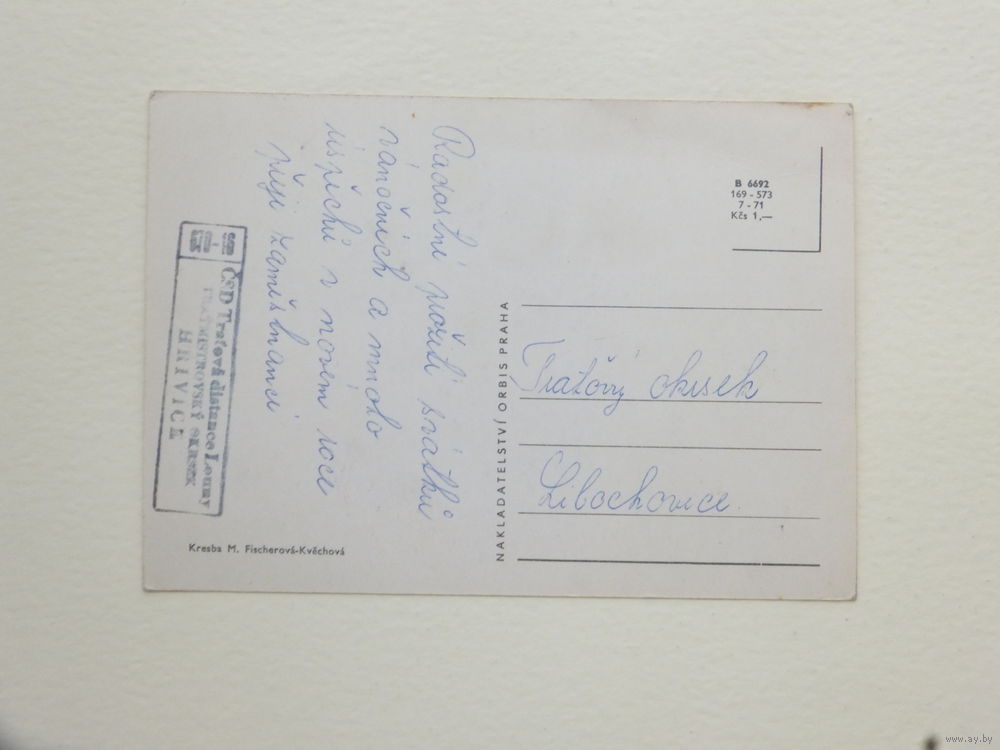 Radostní prožití svátků
vánočních a mnoho
úspěchů v novém roce
přeji zaměstnanci
ČSD Traťová distance Louny
TRAŤMISTROVSKÝ OKRSEK
HŘIVICE
Kresba M. Fischerová-Kvěchová
NAKLADATELSTVÍ ORBIS PRAHA
B 6692
169 - 573
7 - 71
Kčs 1,—
Traťový okrsek
Libochovice
www.ay.by